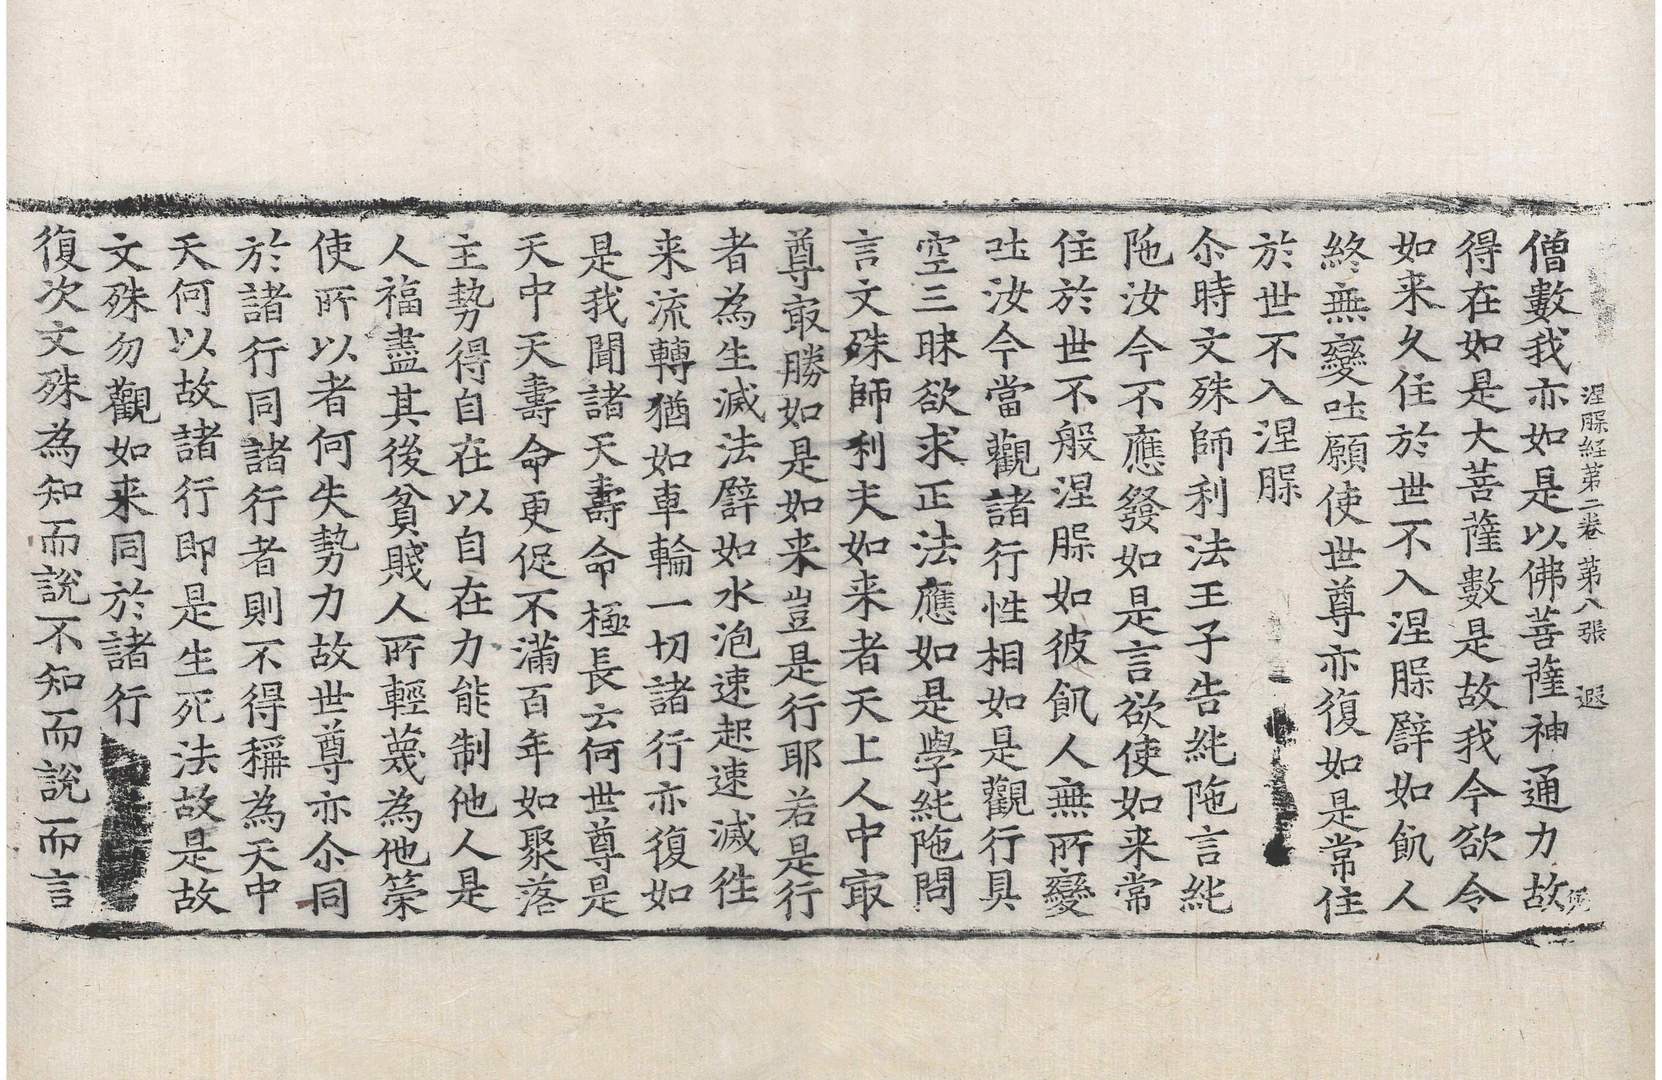 涅脲経第二卷 第八張 遐
僧數我亦如是以佛菩薩神通力故
得在如是大菩薩數是故我今欲令
如来久住於世不入涅脲譬如飢人
終無變吐願使世尊亦復如是常住
於世不入涅脲
尒時文殊師利法王子告純陁言純
陁汝今不應發如是言欲使如来常
住於世不般涅脲如彼飢人無所變
吐汝今當觀諸行性相如是觀行具
空三昧欲求正法應如是學純陁問
言文殊師利夫如来者天上人中㝡
尊㝡勝如是如来豈是行耶若是行
者為生滅法譬如水泡速起速滅徃
来流轉猶如車輪一切諸行亦復如
是我聞諸天壽命極長云何世尊是
天中天壽命更促不滿百年如聚落
主勢得自在以自在力能制他人是
人福盡其後貧賤人所輕蔑為他策
使所以者何失勢力故世尊亦尒同
於諸行同諸行者則不得稱為天中
天何以故諸行即是生死法故是故
文殊勿觀如来同於諸行
復次文殊為知而說不知而說而言